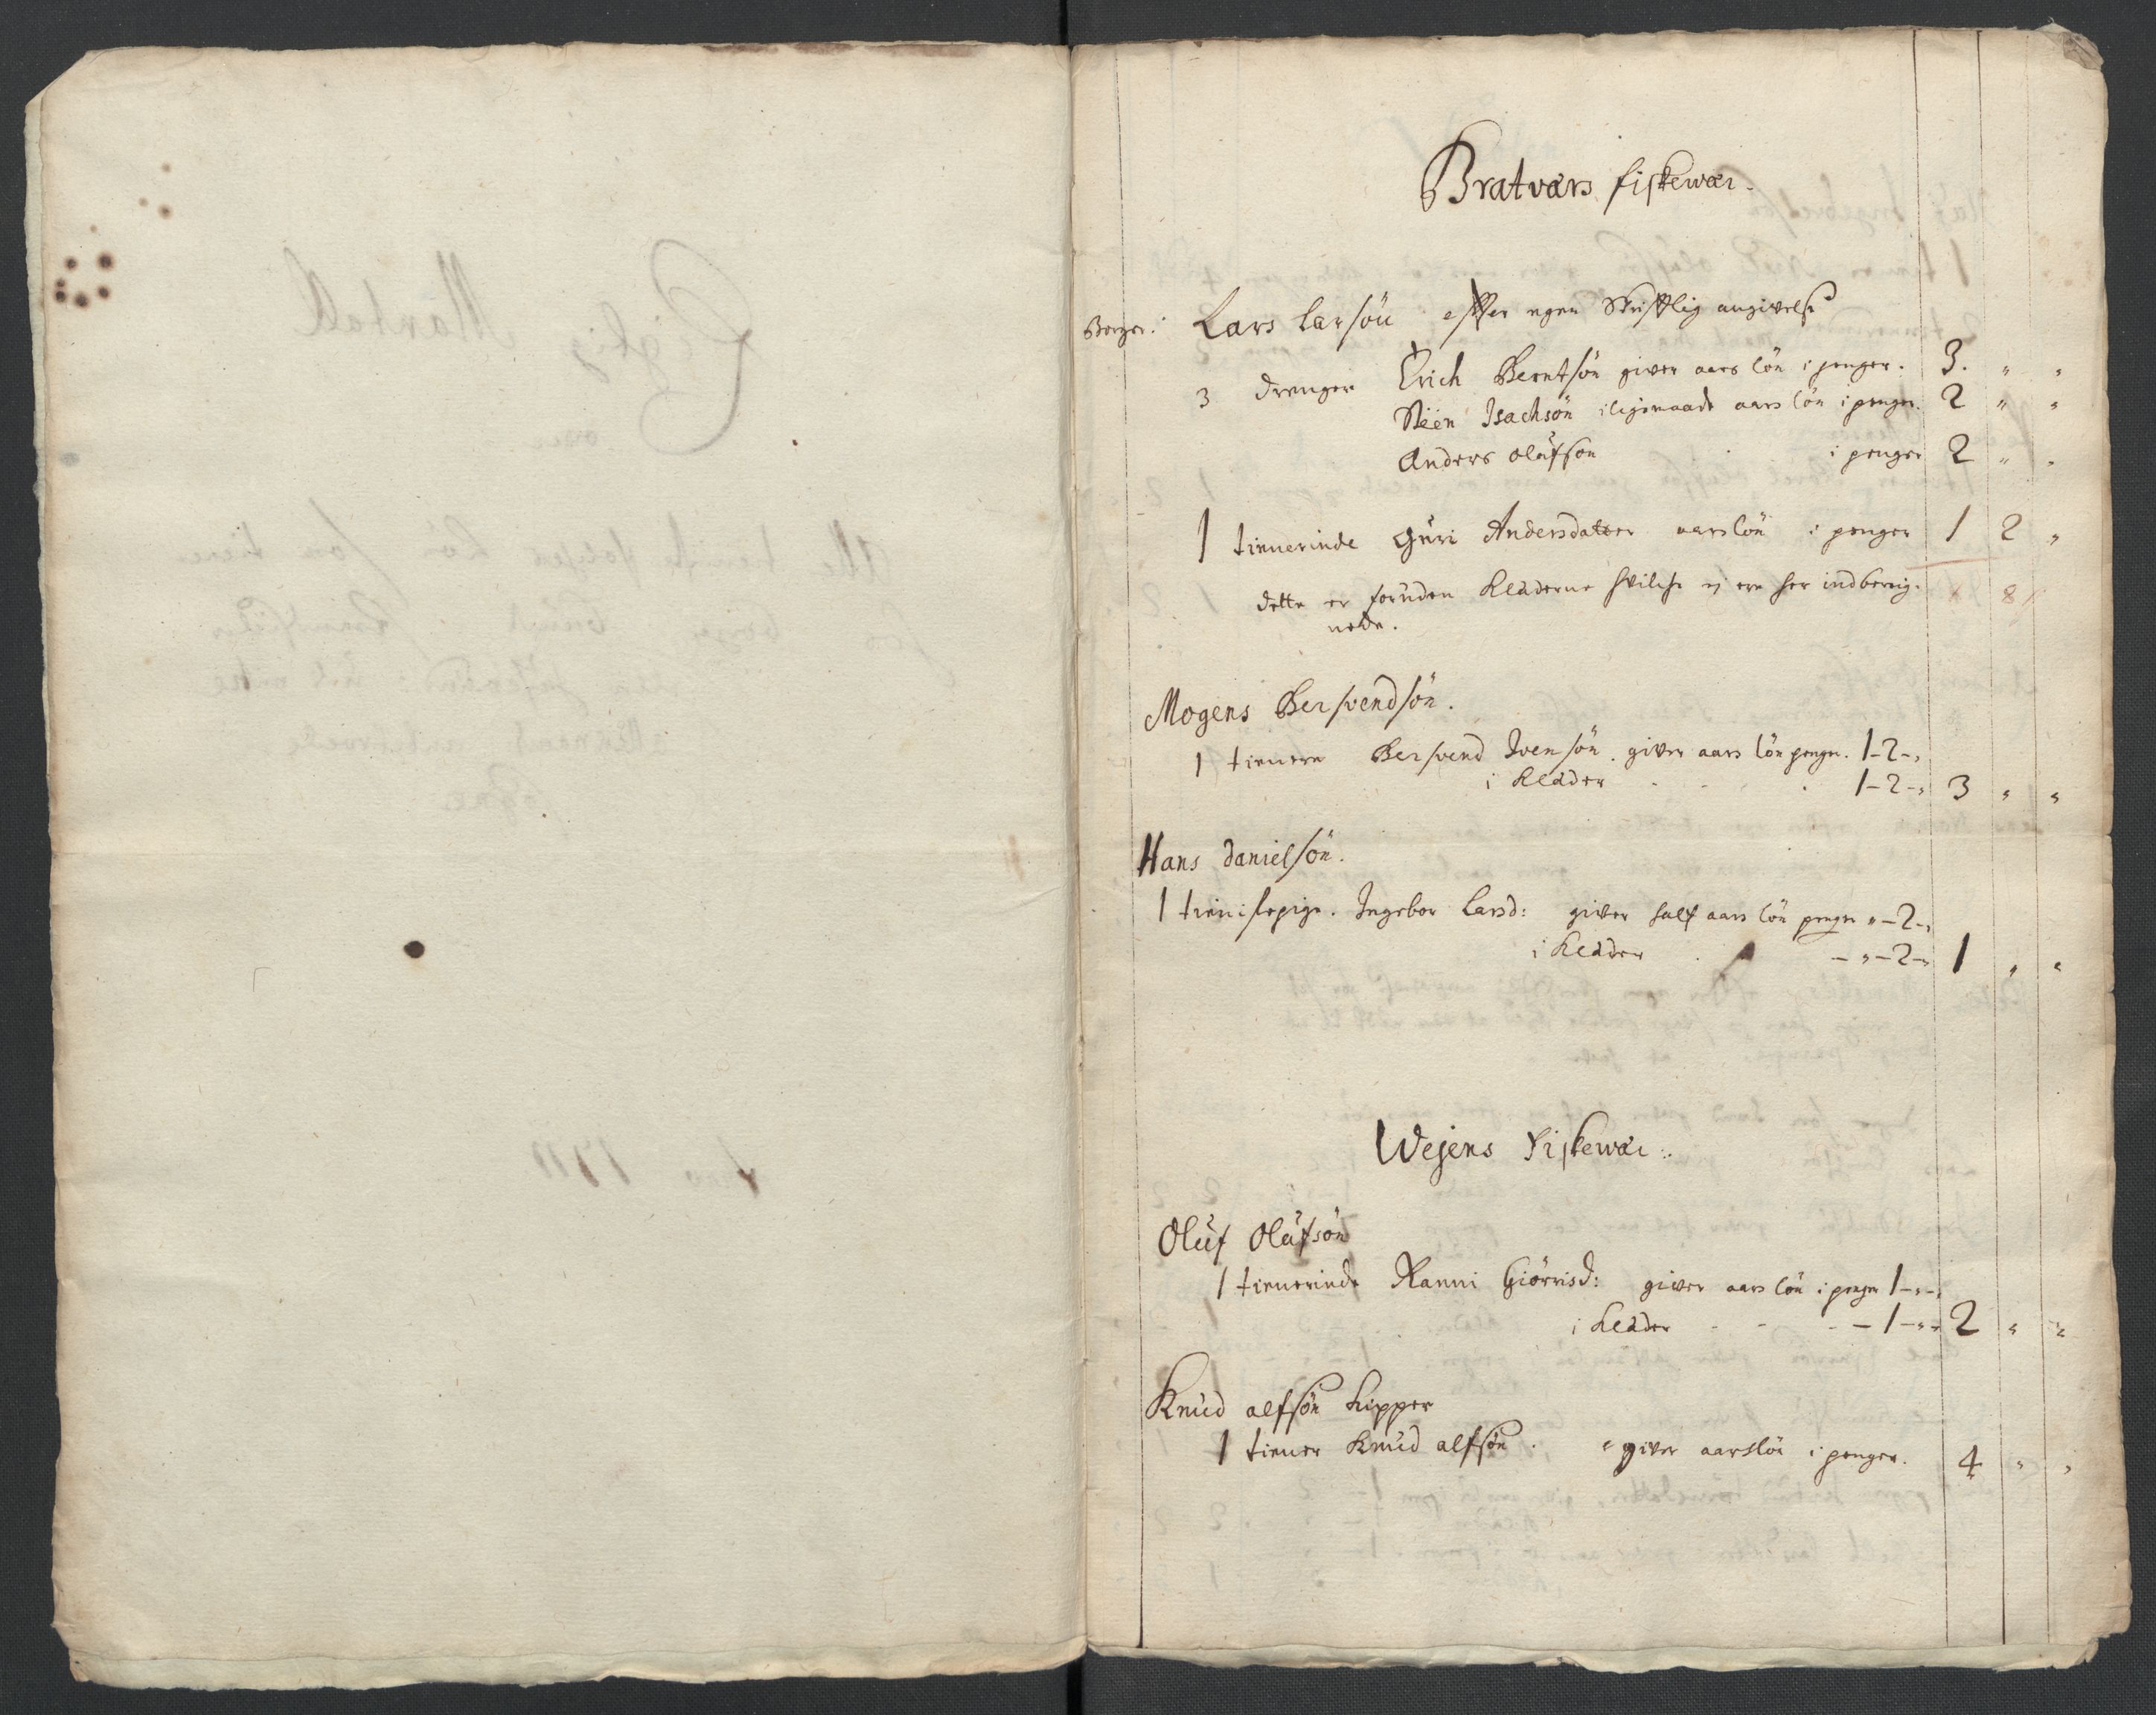 Bratværs fiskewær.
Borger: Lars Larsön efter egen Skriftlig angivelse
3 drenger Erich Berntsön giver aars lön i penger. 3. " "
Steen Isachsön iligemaade aars lön i penger. 2 " "
Anders olüfson i penger 2 " "
1 tienerinde Guri Andersdatter aarslön i penger 1 2 "
dette er foruden Klæderne hvilche ej ere her indbereig-
nede.
Mogens Bersvendsön.
1 tienere Bersvend Ivensön. giver aars lön penger. 1-2-"
i Klæder 1-2-" 3 " "
Hans danielsön.
1 tienistepige. Ingebor Larsd: giver half aars lön penger "-2-"
i Klæder - "-2-" 1 " "
Wejens Fiskewær:
Olüf Olüfsön
1 tienerinde Ranni Giörrisd: giver aars lön i penger 1-"-"
i Klæder - - - 1-"-" 2 " "
Knüd alfsön
1 tiener Knüd alfsön. giver aarslön i penger. 4 " "